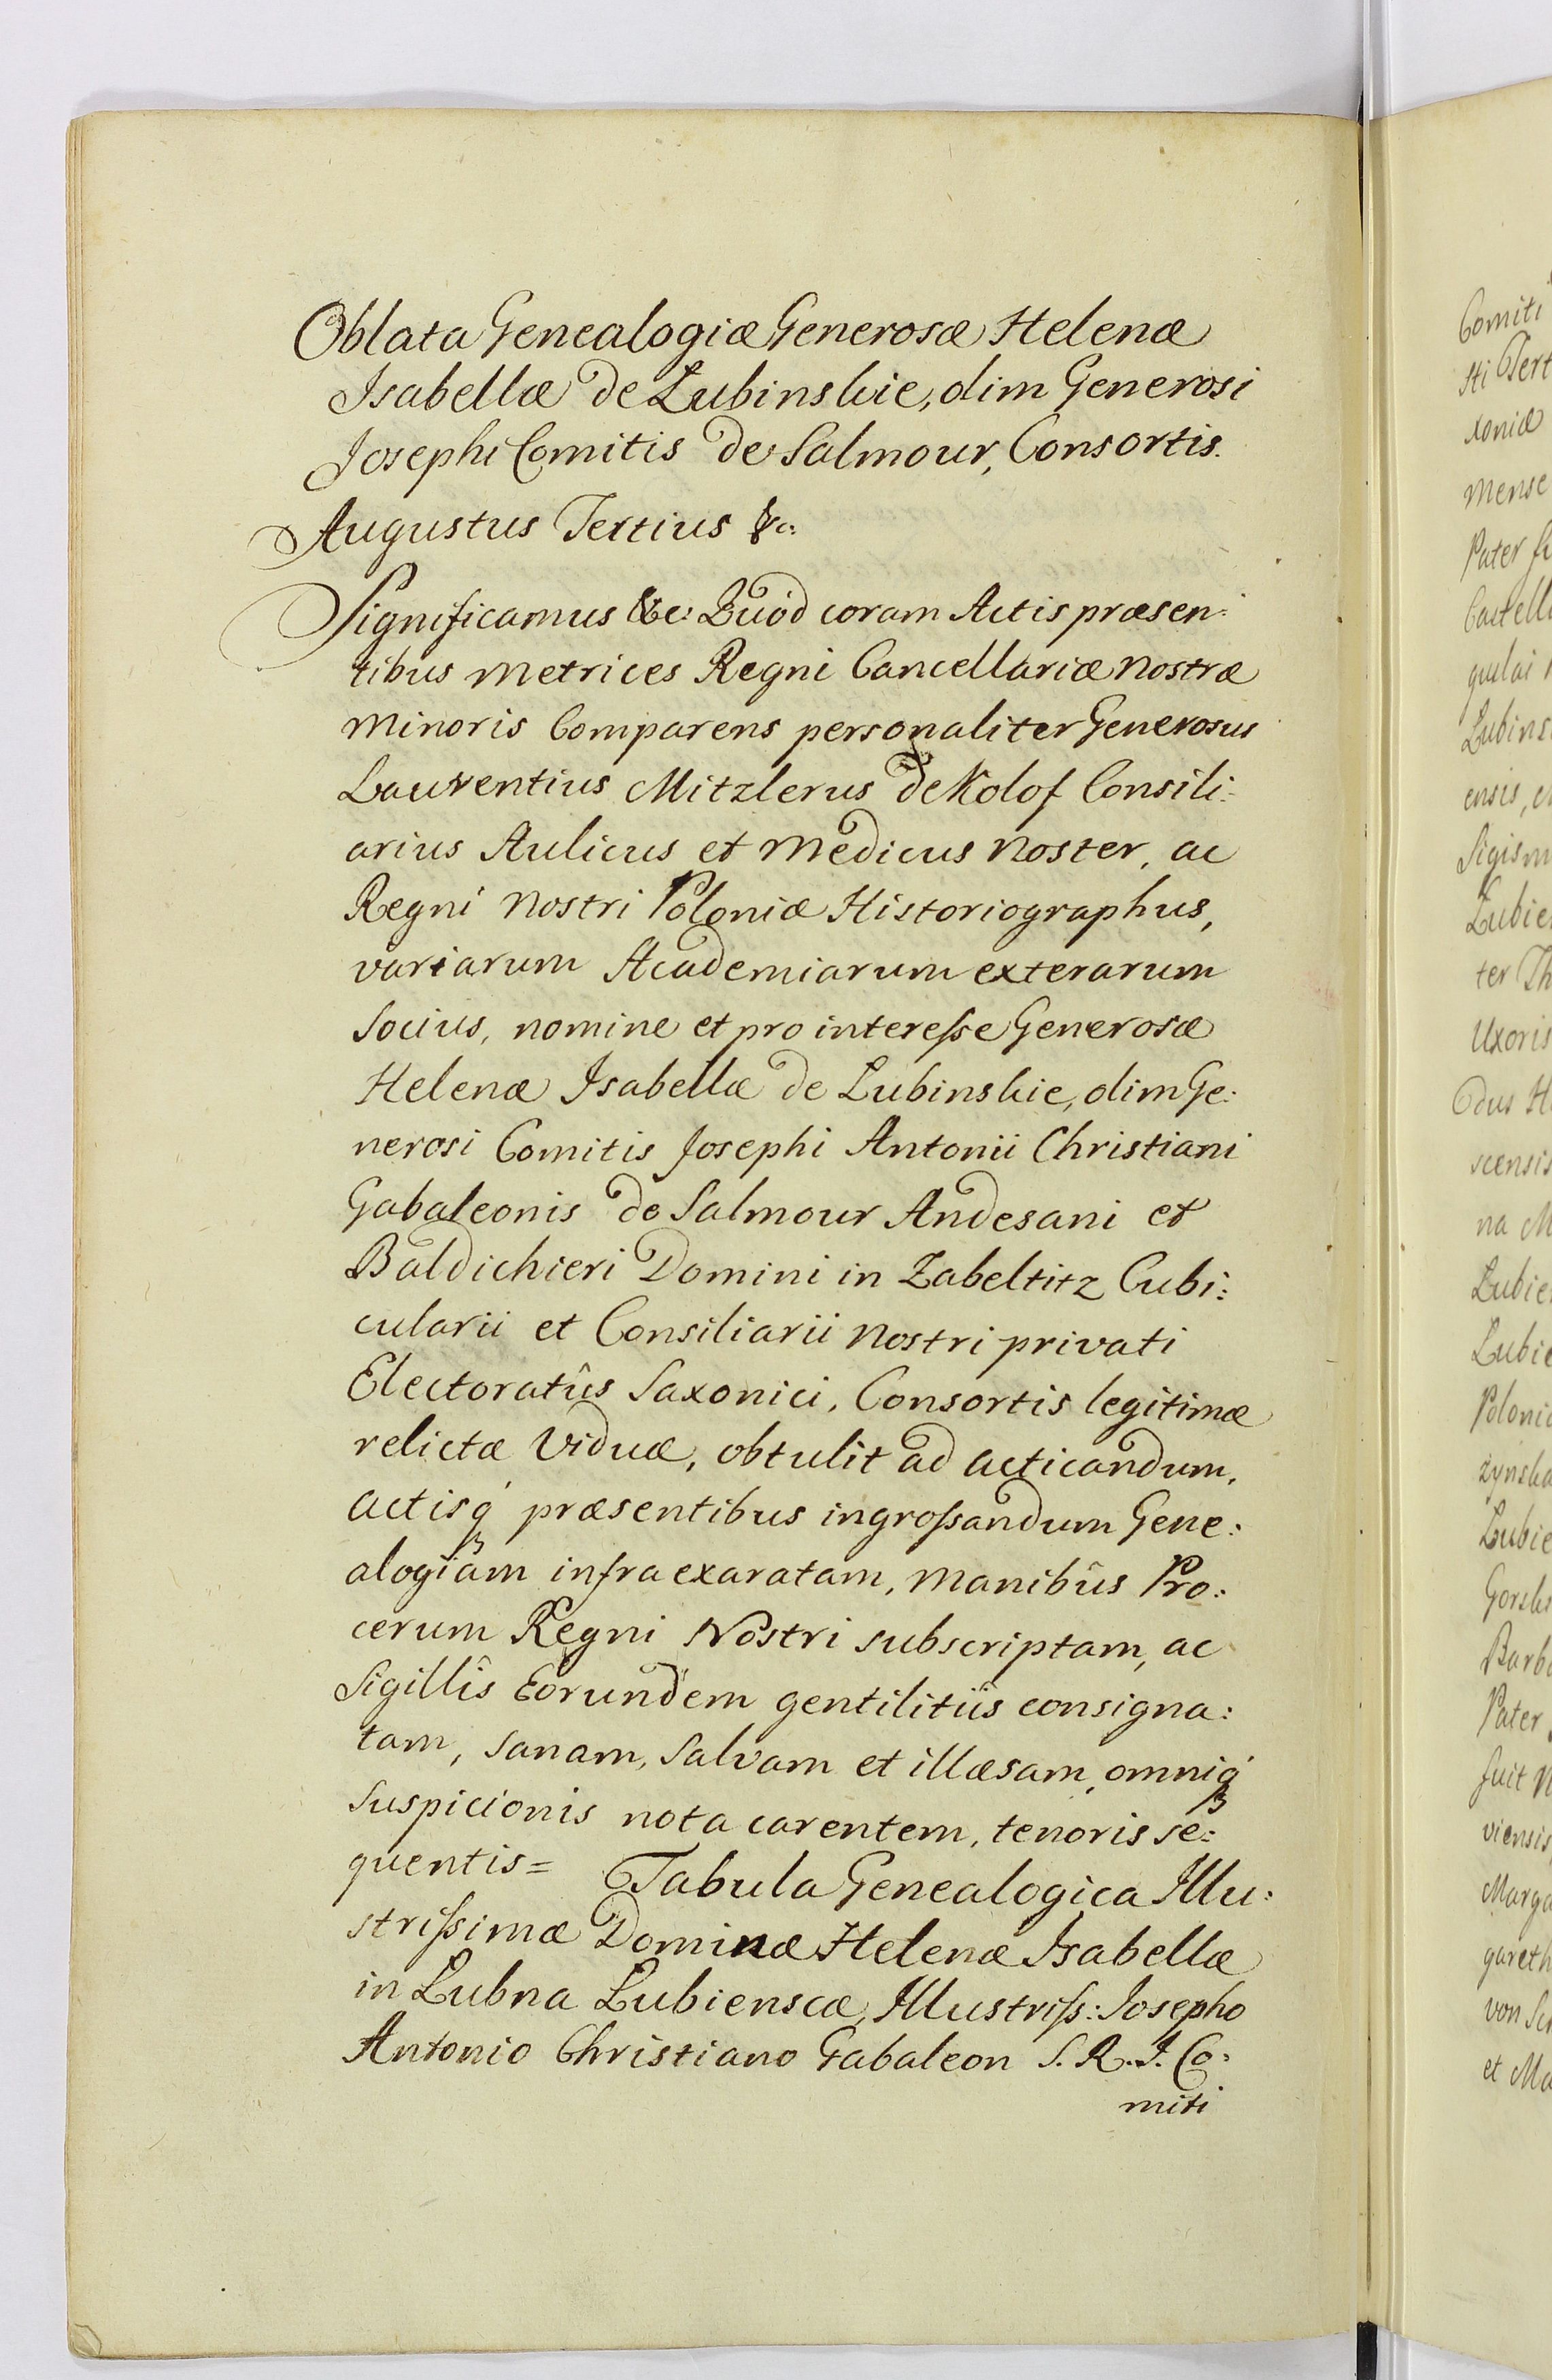 Oblata Genealogiæ Generosæ Helenæ
Isabellæ de Lubinskie, olim Generosi
Josephi Comitis de Salmour, Consortis.
Augustus Tertius &c:
Significamus &c: Quòd coram Actis præsen:
tibus Metrices Regni Cancellariæ Nostræ
Minoris Comparens personaliter Generosus
Laurentius Mitzlerus de Kolof Consili:
arius Aulicus et Medicus Noster, ac
Regni Nostri Poloniæ Historiographus,
variarum Academiarum exterarum
Socius, nomine et pro interesse Generosæ
Helenæ Isabellæ de Lubinskie, olim Ge:
nerosi Comitis Josephi Antonii Christiani
Gabaleonis de Salmour Andesani et
Baldichieri Domini in Zabeltitz Cubi:
cularii et Consiliarii Nostri privati
Electoratûs Saxonici, Consortis legitimæ
relictæ Viduæ, obtulit ad acticandum,
actisq́ præsentibus ingrossandum Gene:
alogiam infra exaratam, manibûs Pro:
cerum Regni Nostri subscriptam, ac
Sigillîs Eorundem gentilitiis consigna:
tam, sanam, salvam et illæsam, omniq́
suspicionis nota carentem, tenoris se:
quentis = Tabula Genealogica Illu:
strissimæ Dominæ Helenæ Isabellæ
in Lubna Lubienscæ, Illustriss: Josepho
Antonio Christiano Gabaleon S. R. I. Co:
miti
Comiti
xoniæ
Mense
Pater
Lubins
ensis,
Sigism
ter Th
Uxoris
na M
Pater
fuit
viensis
et Ma